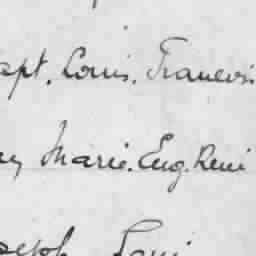 apt. Louis. Francois
Marie. Eug. René
seph Loui